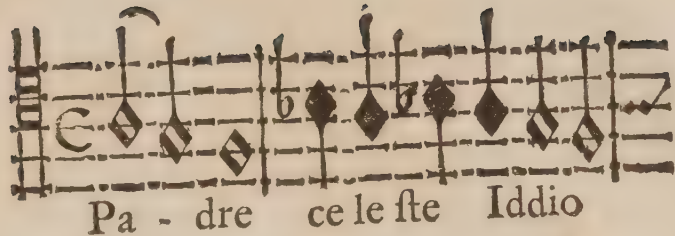 Pa - dre ce le ſte Iddio